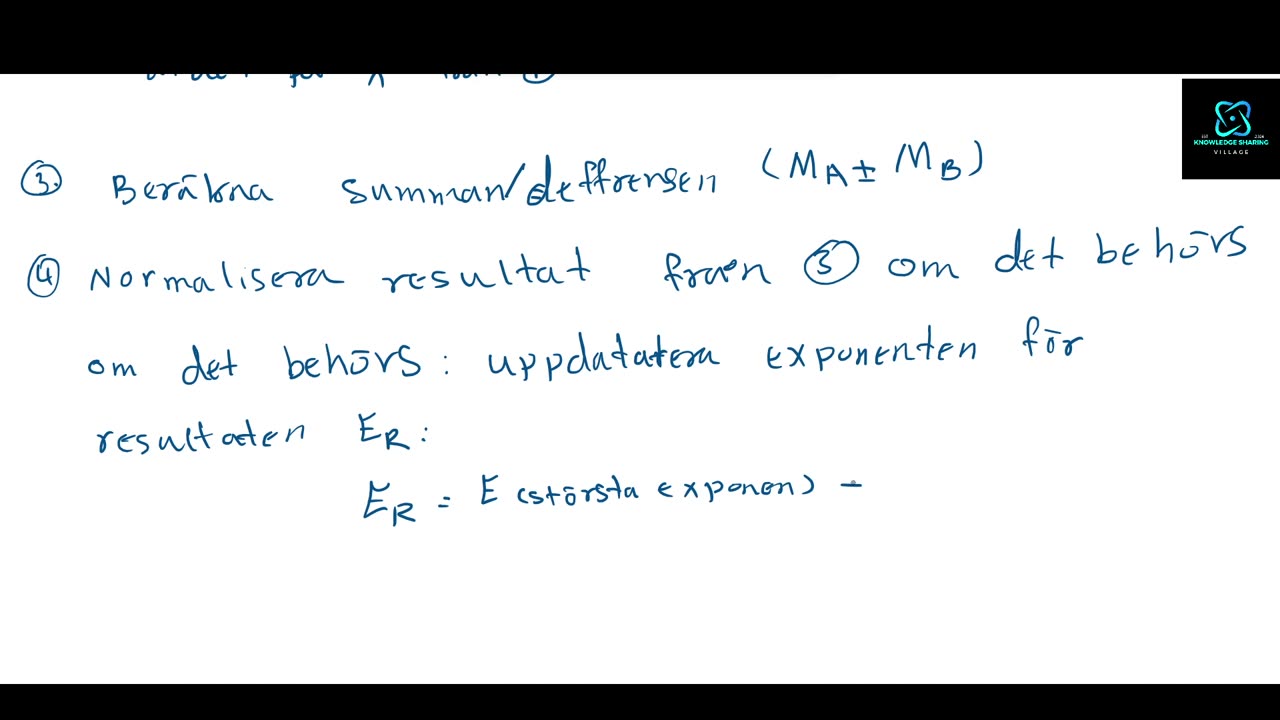 för
③. Beräkna summan/deffrensen (MA ± MB)
④ Normalisera resultat fraen ③ om det behörs
om det behörs: uppdatatera exponenten för
resultaten ER:
ER = E (största exponen) -
KNOWLEDGE SHARING
VILLAGE